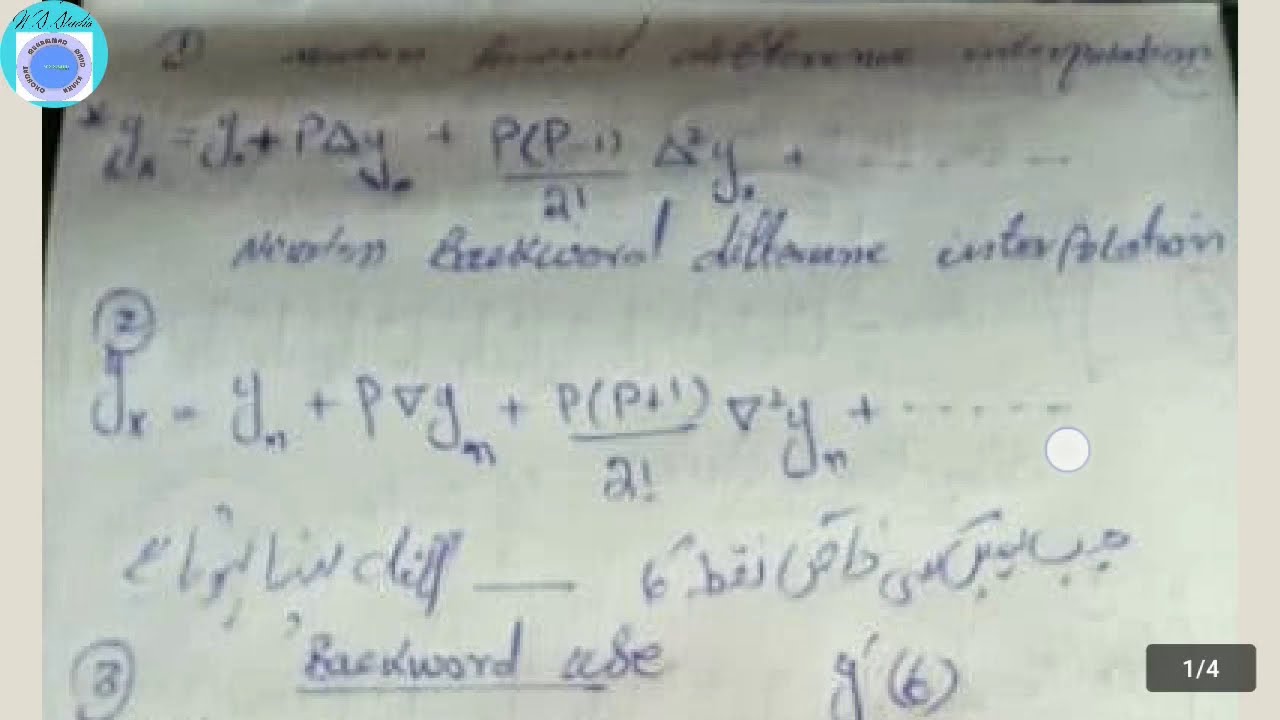 W.S. Studio
① Newton forward difference interpolation
* yₓ = y₀ + PΔy₀ + P(P-1)/2! Δ²y₀ + ......
Newton Backword difference interpolation
②
yₓ = yₙ + P∇yₙ + P(P+1)/2! ∇²yₙ + ......
جب ہمیں کسی خاص نقطہ 6 —— diff لینا ہو تو
③ Backword use y'(6)
1/4